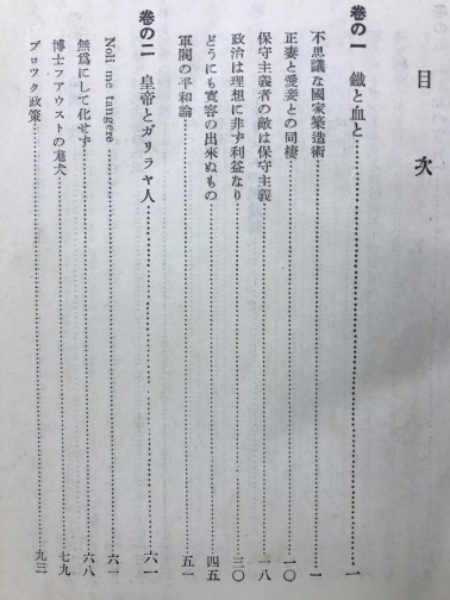 目次
巻の一 鐵と血と 一
不思議な國家築造術 一
正妻と愛妾との同棲 一〇
保守主義者の敵は保守主義 一八
政治は理想に非ず利益なり 三〇
どうにも寛容の出來ぬもの 四五
軍閥の平和論 五一
巻の二 皇帝とガリラヤ人 六一
Noli me tangere 六一
無爲にして化せず 六八
博士フアウストの尨犬 七九
ブロツク政策 九三